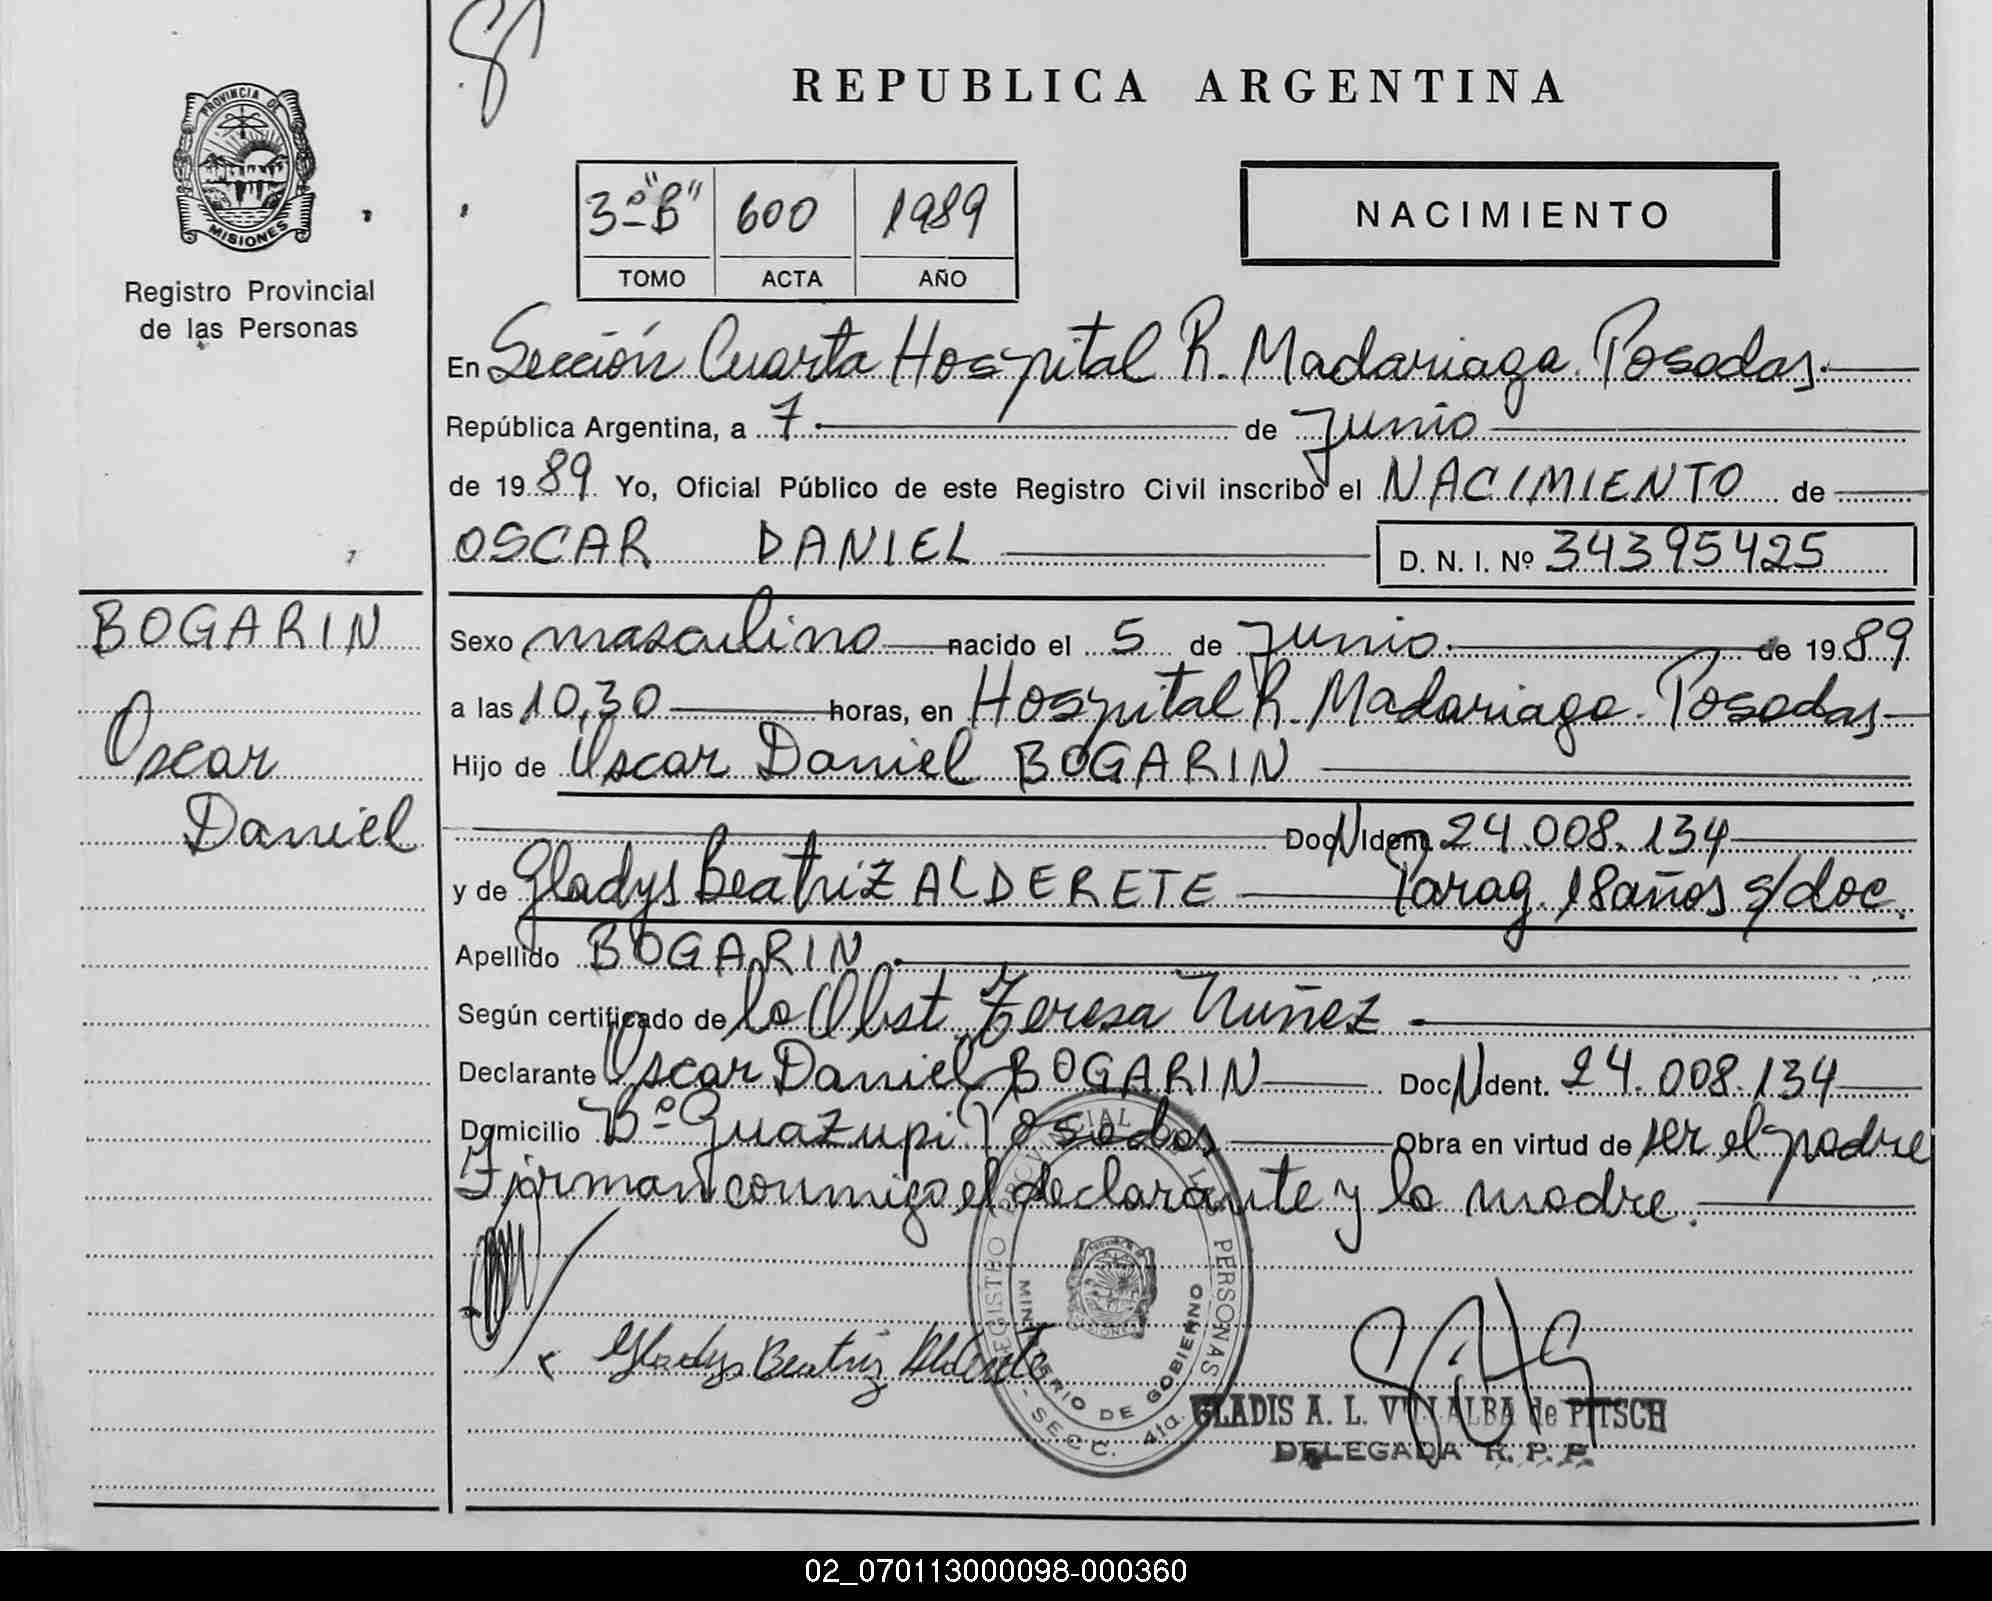 REPUBLICA ARGENTINA
PROVINCIA DE
MISIONES
Registro Provincial
de las Personas
3º "B" 600 1989
TOMO ACTA AÑO
NACIMIENTO
En Sección Cuarta Hospital R. Madariaga. Posadas.
República Argentina, a 7 de Junio
de 1989 Yo, Oficial Público de este Registro Civil inscribo el NACIMIENTO de
OSCAR DANIEL D. N. I. Nº 34395425
BOGARIN
Oscar
Daniel
Sexo masculino nacido el 5 de Junio de 1989
a las 10,30 horas, en Hospital R. Madariaga. Posadas
Hijo de Oscar Daniel BOGARIN
Doc N Ident. 24.008.134
y de Gladys Beatriz ALDERETE Parag. 18 años s/doc.
Apellido BOGARIN
Según certificado de la Obst. Teresa Nuñez
Declarante Oscar Daniel BOGARIN Doc N Ident. 24.008.134
Domicilio Bº Guazupi Posadas Obra en virtud de ser el padre
Firman conmigo el declarante y la madre.
Gladys Beatriz Alderete
REGISTRO PROVINCIAL DE LAS PERSONAS
MINISTERIO DE GOBIERNO
SECC. 4ta.
GLADIS A. L. VILLALBA de PITSCH
DELEGADA R. P. P.
02_070113000098-000360